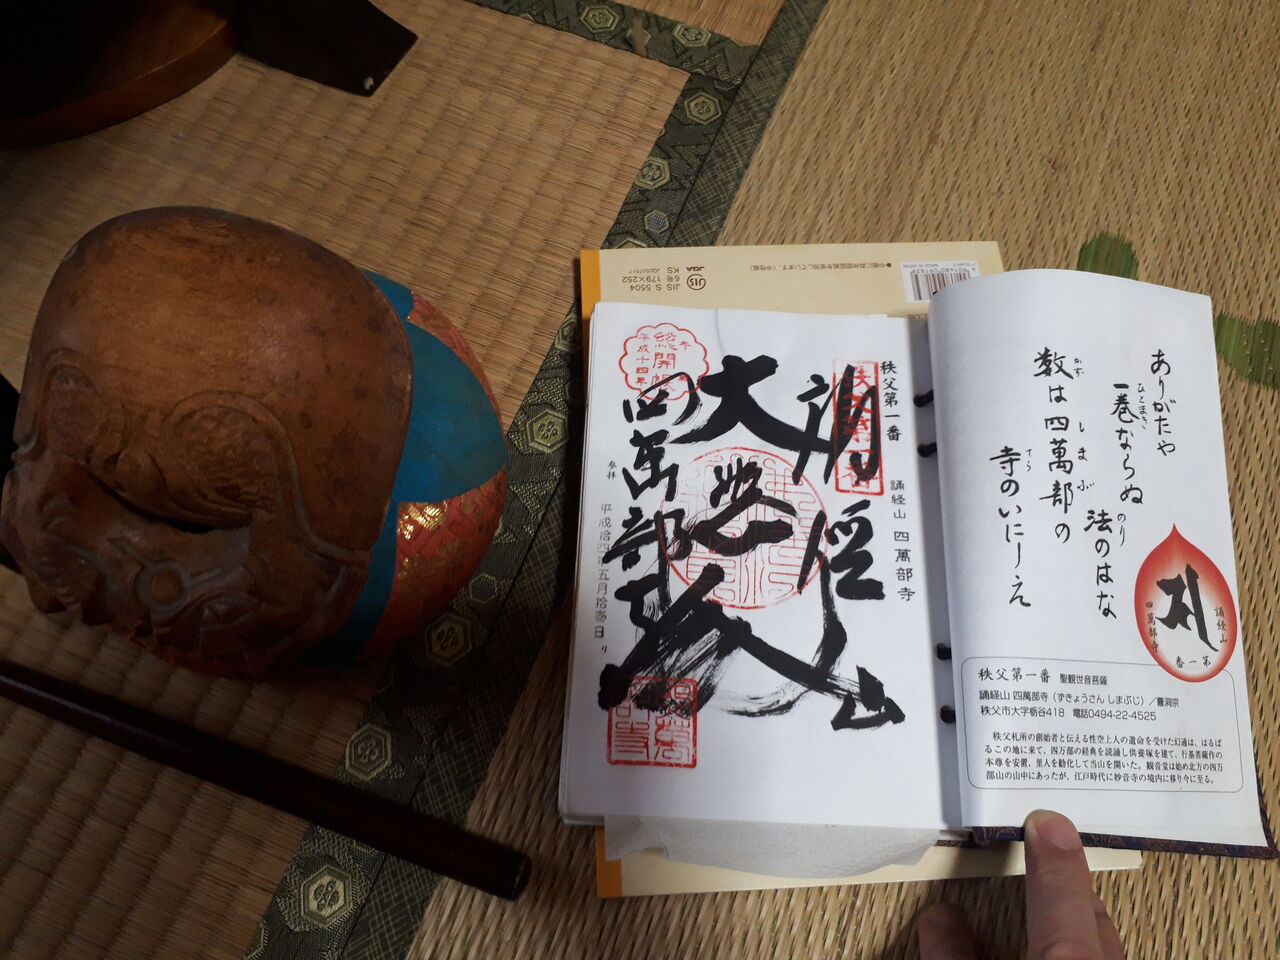 ありがたや
一巻ならぬ
ひとまき
法のはな
のり
数は四萬部の
かず
しまぶ
寺のいにしえ
てら
誦経山
第一番
四萬部寺
秩父第一番 聖観世音菩薩
誦経山 四萬部寺（ずきょうさん しまぶじ）／曹洞宗
秩父市大字栃谷418 電話0494-22-4525
秩父札所の創始者と伝える性空上人の遺命を受けた幻通は、はるば
るこの地に来て、四万部の経典を読誦し供養塚を建て、行基菩薩作の
本尊を安置、里人を勧化して当山を開いた。観音堂は始め北方の四万
部山の山中にあったが、江戸時代に妙音寺の境内に移り今に至る。
秩父第一番
誦経山 四萬部寺
誦経山
大悲殿
四萬部寺
総開帳
平成十四年
参拝
平成拾四年五月拾壱日
JIS S 5504
6号 179×252
KS
JIS
JQA
JQ0507017
4901480091839